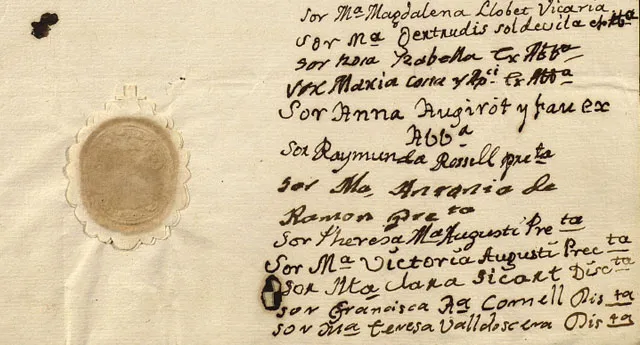 Sor Mª Magdalena Llobet Vicaria
Sor Mª Gertrudis soldevila ex Abᵇᵃ
Sor Rosa Ysabella Ex Abbᵃ
Sor Maria y Ex Abbᵃ
Sor Anna Augirót y fau ex
Abbᵃ
Sor Raymunda Rossell preᵗᵃ
Sor Mª Antonia de
Ramon preᵗᵃ
Sor Theresa Mª Augusti Preᵗᵃ
Sor Mª Victoria Augusti Precᵗᵃ
Sor Mª Clara Sicart Discᵗᵃ
Sor Francisca Rª Cornell Disᵗᵃ
Sor Mª Teresa Valldoscera Disᵗᵃ